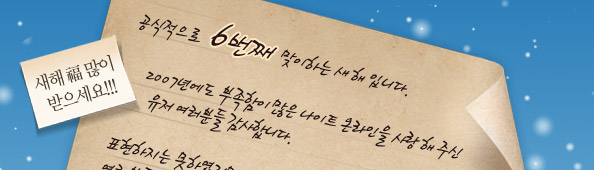 새해 福 많이
받으세요!!!
공식적으로 6번째 맞이하는 새해 입니다.
2007년에도 부족함이 많은 나이트 온라인을 사랑해 주신
유저 여러분들 감사합니다.
표현하지는 못하였지만